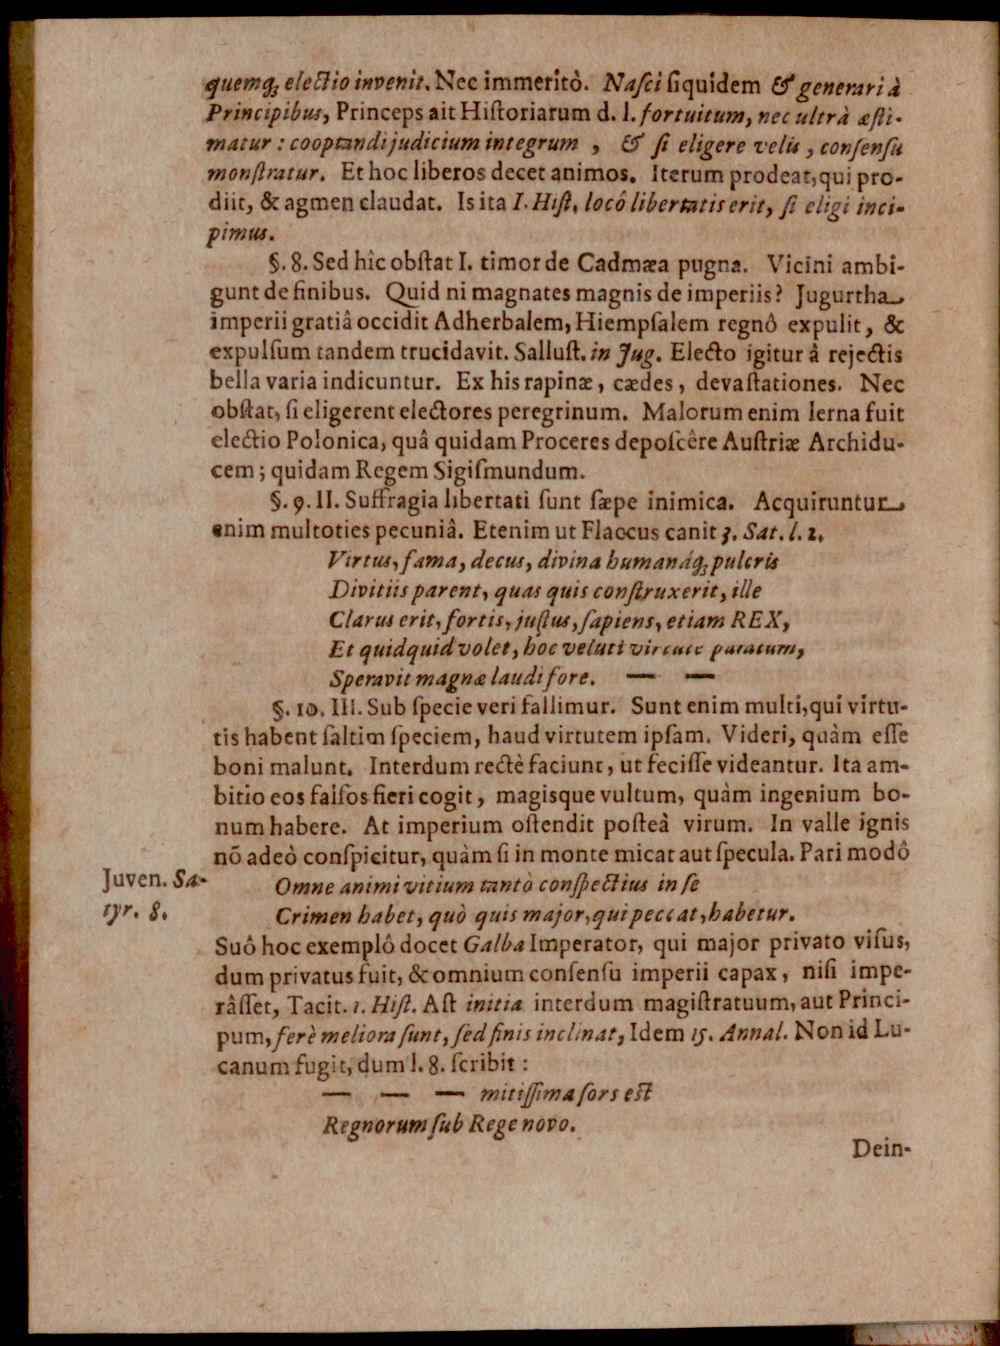 quemq; electio invenit. Nec immeritò. Nasci siquidem & generari à
Principibus, Princeps ait Historiarum d. l. fortuitum, nec ultrà æsti-
matur: cooptandi judicium integrum, & si eligere velis, consensu
monstratur. Et hoc liberos decet animos. Iterum prodeat, qui pro-
diit, & agmen claudat. Is ita I. Hist. locô libertatis erit, si eligi inci-
pimus.
§. 8. Sed hîc obstat I. timor de Cadmæa pugna. Vicini ambi-
gunt de finibus. Quid ni magnates magnis de imperiis? Jugurtha
imperii gratiâ occidit Adherbalem, Hiempsalem regnô expulit, &
expulsum tandem trucidavit. Sallust. in Jug. Electo igitur â rejectis
bella varia indicuntur. Ex his rapinæ, cædes, devastationes. Nec
obstat, si eligerent electores peregrinum. Malorum enim lerna fuit
electio Polonica, quâ quidam Proceres deposcêre Austriæ Archidu-
cem; quidam Regem Sigismundum.
§. 9. II. Suffragia libertati sunt sæpe inimica. Acquiruntur
enim multoties pecuniâ. Etenim ut Flaccus canit 3. Sat. l. 2.
Virtus, fama, decus, divina humanáq; pulcris
Divitiis parent, quas quis construxerit, ille
Clarus erit, fortis, justus, sapiens, etiam REX,
Et quidquid volet, hoc veluti virtute paratum,
Speravit magnæ laudi fore. — —
§. 10. III. Sub specie veri fallimur. Sunt enim multi, qui virtu-
tis habent saltim speciem, haud virtutem ipsam. Videri, quàm esse
boni malunt. Interdum rectè faciunt, ut fecisse videantur. Ita am-
bitio eos falsos fieri cogit, magisque vultum, quàm ingenium bo-
num habere. At imperium ostendit posteà virum. In valle ignis
nõ adeò conspicitur, quàm si in monte micat aut specula. Pari modô
Juven. Sa-
tyr. 8.
Omne animi vitium tantò conspectius in se
Crimen habet, quò quis major, qui peccat, habetur.
Suô hoc exemplô docet Galba Imperator, qui major privato visus,
dum privatus fuit, & omnium consensu imperii capax, nisi impe-
râsset, Tacit. 1. Hist. Ast initia interdum magistratuum, aut Princi-
pum, ferè meliora sunt, sed finis inclinat, Idem 15. Annal. Non id Lu-
canum fugit, dum l. 8. scribit:
— — — mitissima sors est
Regnorum sub Rege novo.
Dein-